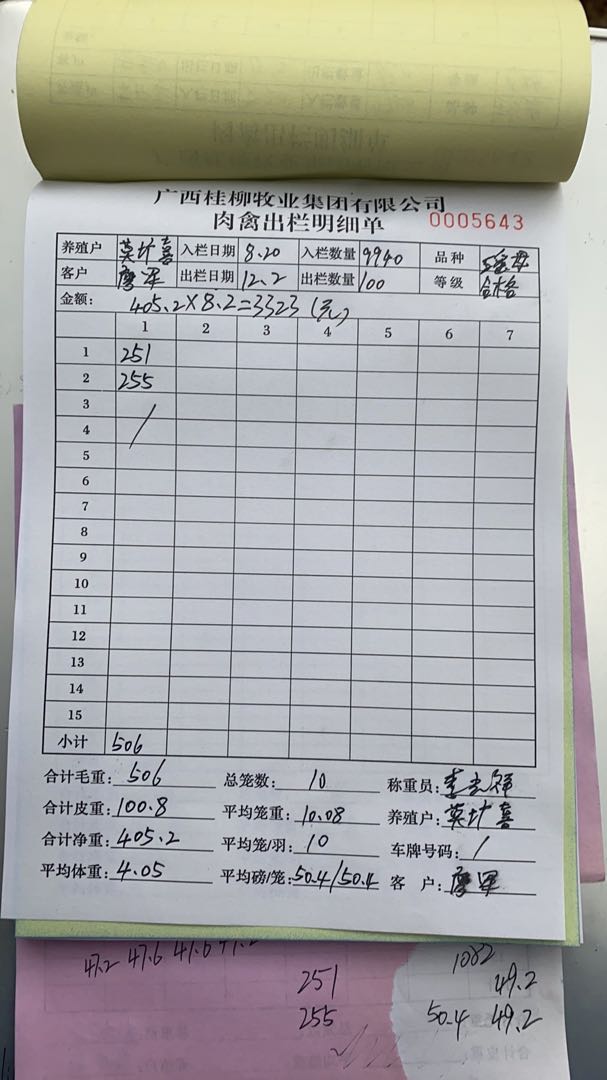 广西桂柳牧业集团有限公司
肉禽出栏明细单 0005643
养殖户 莫计喜 入栏日期 8.20 入栏数量 9940 品种
客户 廖军 出栏日期 12.2 出栏数量 100 等级 合格
金额: 405.2×8.2=3323(元)
1 2 3 4 5 6 7
1 251
2 255
3
4 /
5
6
7
8
9
10
11
12
13
14
15
小计 506
合计毛重: 506 总笼数: 10 称重员:
合计皮重: 100.8 平均笼重: 10.08 养殖户: 莫计喜
合计净重: 405.2 平均笼/羽: 10 车牌号码: /
平均体重: 4.05 平均磅/笼: 50.4/50.4 客 户: 廖军
47.2 47.6 47.6 47.2 1082
251 49.2
255 50.4 49.2